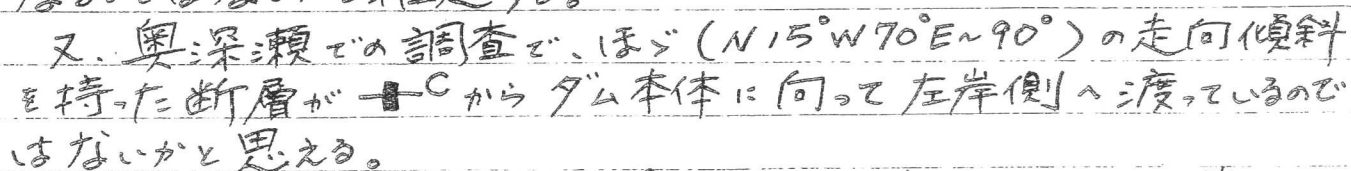 又、奥深瀬での調査で、ほゞ(N15°W70°E~90°)の走向傾斜
を持った断層が Cからダム本体に向って左岸側へ渡っているので
はないかと思える。